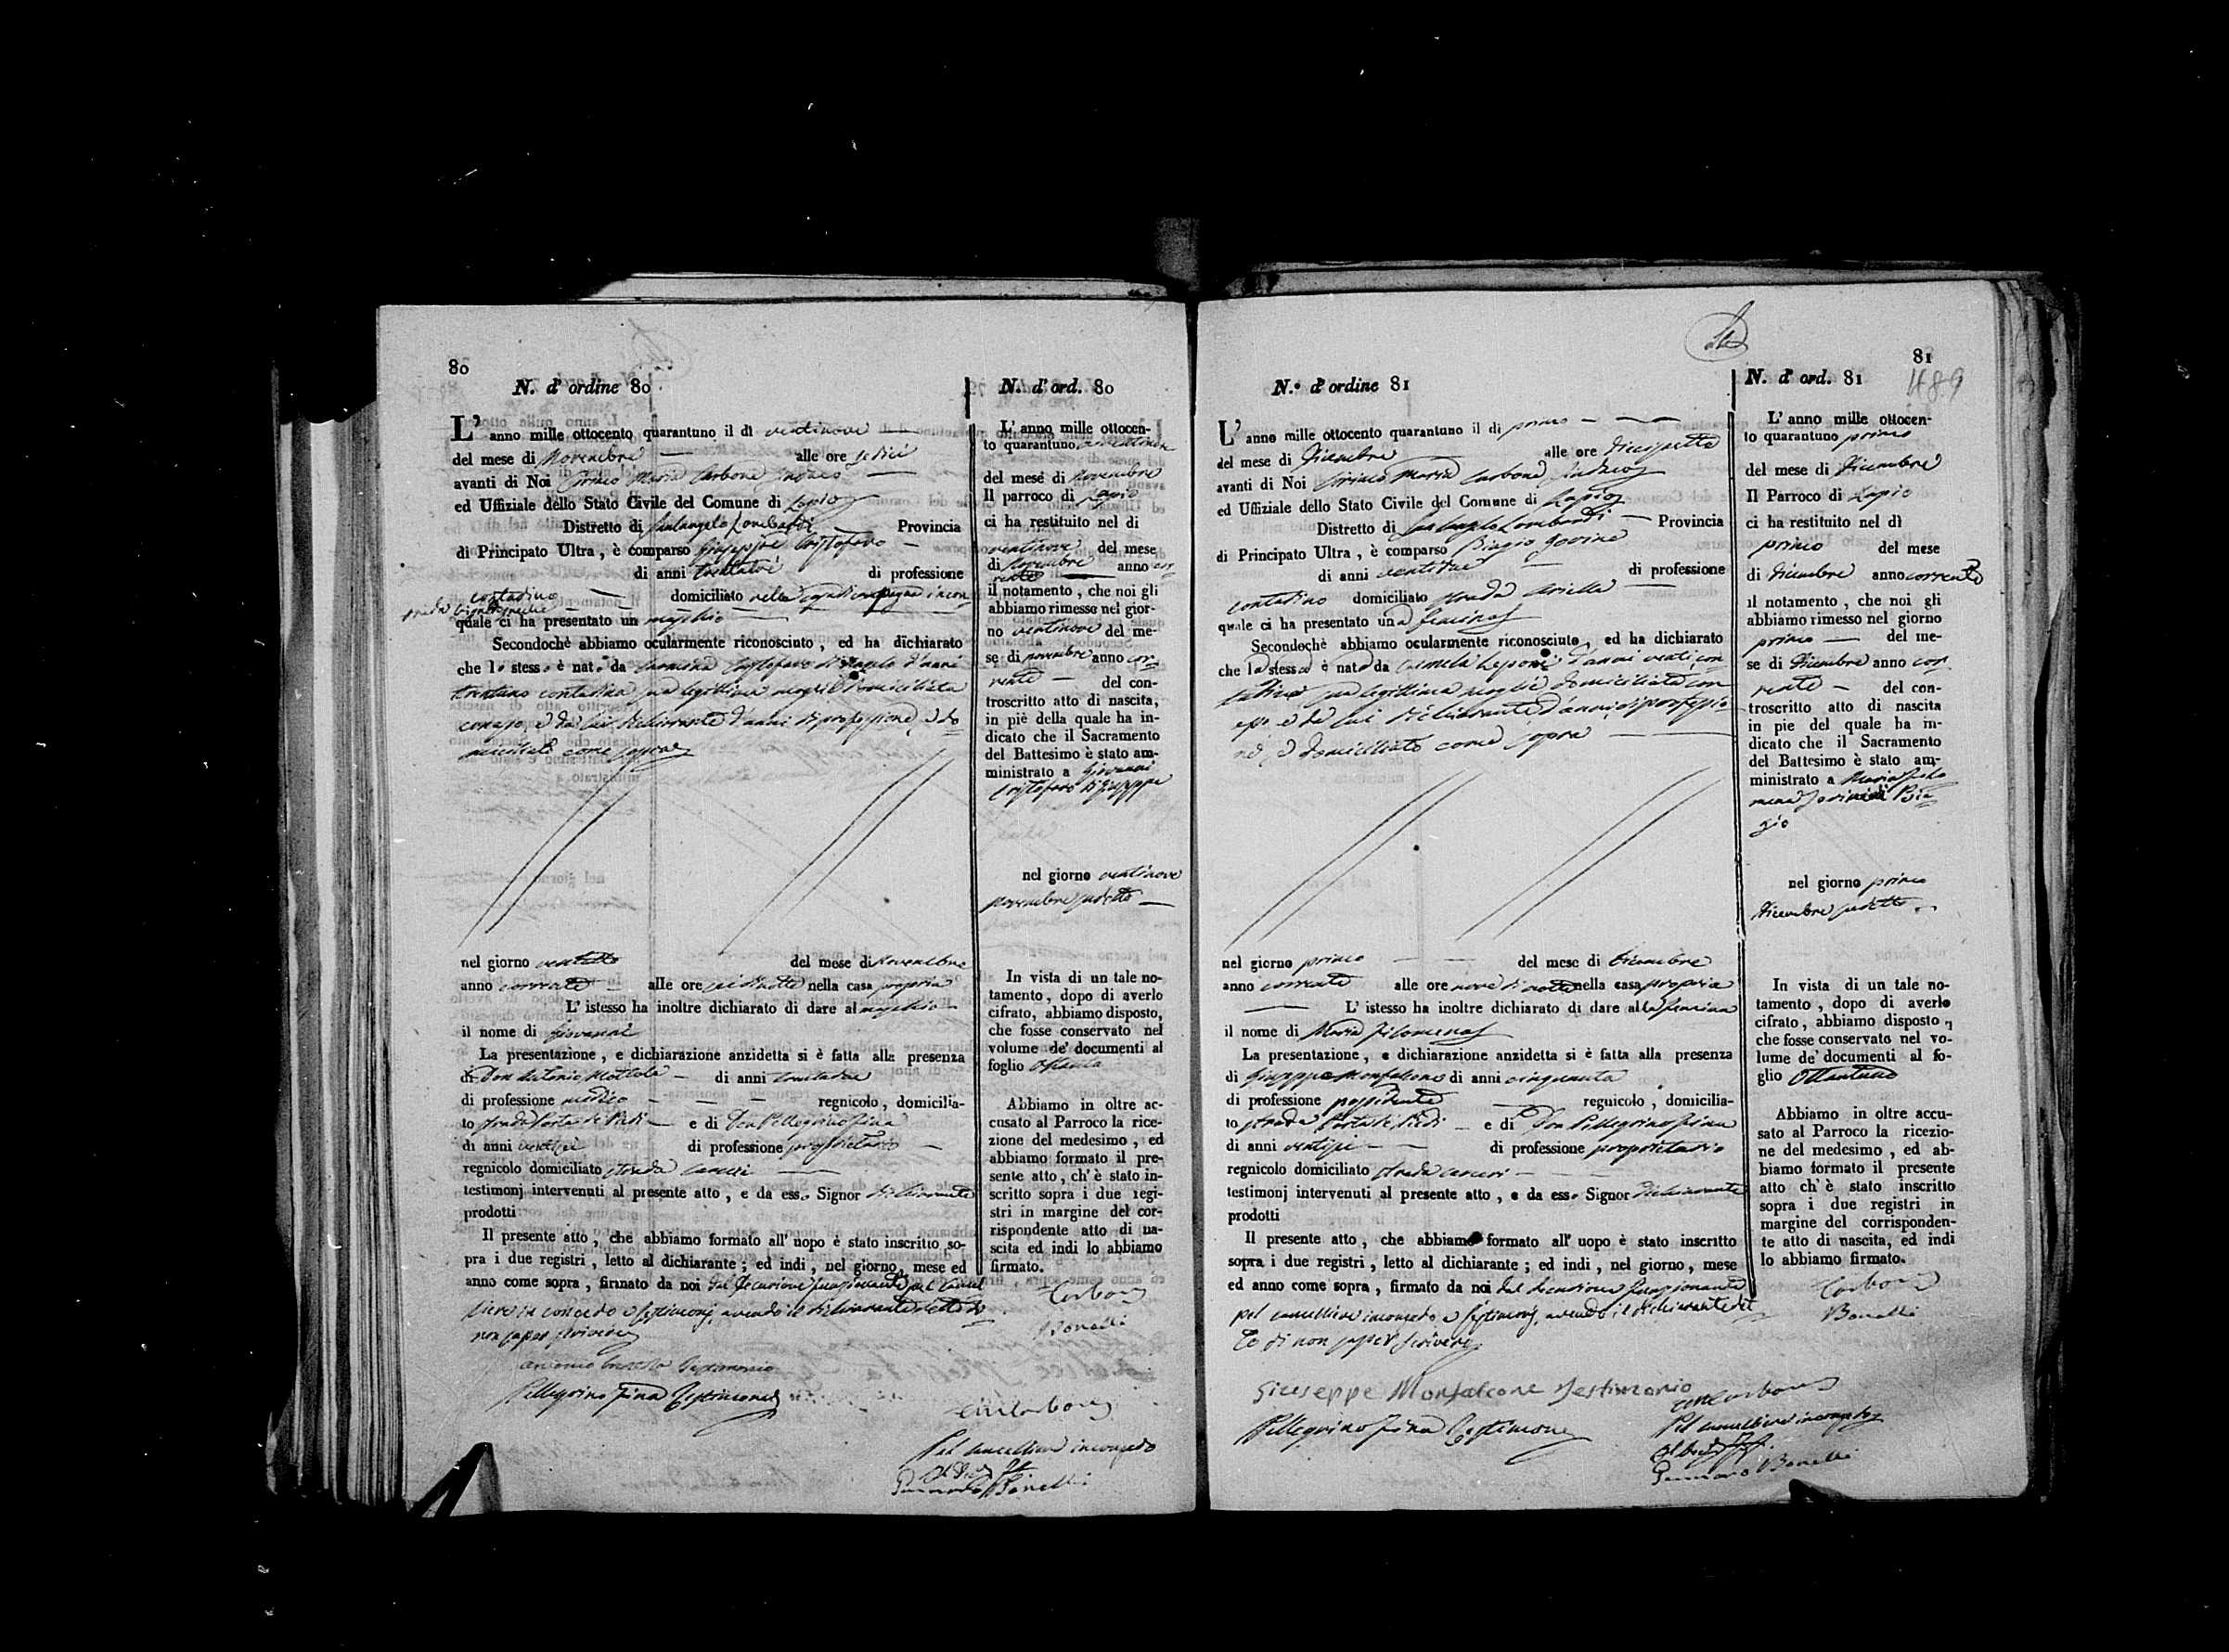 80
N. d' ordine 80
L' anno mille ottocento quarantuno il dì ventinove
del mese di Novembre alle ore sedici
avanti di Noi Maria Carbone Sindaco
ed Uffiziale dello Stato Civile del Comune di Lapio
Distretto di Santangelo Lombardi Provincia
di Principato Ultra, è comparso Giuseppe Cristofaro
di anni trentatrè di professione
contadino domiciliato nella
quale ci ha presentato un maschio
Secondochè abbiamo ocularmente riconosciuto, ed ha dichiarato
che lo stesso è nato da Carmina Cristofaro di Angelo d'anni
trentuno contadina sua legittima moglie domiciliata
con esso, e da lui dichiarante d'anni di professione, e do
miciliato come sopra
nel giorno ventotto del mese di Novembre
anno corrente alle ore di notte nella casa propria
L' istesso ha inoltre dichiarato di dare al maschio
il nome di Giovanni
La presentazione, e dichiarazione anzidetta si è fatta alla presenza
di Don Antonio Mottola di anni trentadue
di professione medico regnicolo, domicilia-
to strada Porta de Piedi e di Don Pellegrino Fina
di anni ventisei di professione proprietario
regnicolo domiciliato strada carceri
testimonj intervenuti al presente atto, e da esso Signor dichiarante
prodotti
Il presente atto, che abbiamo formato all' uopo è stato inscritto so-
pra i due registri, letto al dichiarante; ed indi, nel giorno, mese ed
anno come sopra, firmato da noi dal Decurione funzionante pel Cancel
liere in concedo e testimonj, avendo il dichiarante detto di
non saper scrivere
Antonio Mottola Testimonio
Pellegrino Fina Testimone
Carbone
Pel cancelliere in congedo
Gennaro Bonelli
N. d' ord. 80
L' anno mille ottocen-
to quarantuno ventinove
del mese di Novembre
Il parroco di Lapio
ci ha restituito nel di
ventinove del mese
di Novembre anno cor-
rente
il notamento, che noi gli
abbiamo rimesso nel gior-
no ventinove del me-
se di novembre anno cor-
rente del con-
troscritto atto di nascita,
in piè della quale ha in-
dicato che il Sacramento
del Battesimo è stato am-
ministrato a Giovanni
Cristofaro di Giuseppe
nel giorno ventinove
Novembre sudetto
In vista di un tale no-
tamento, dopo di averlo
cifrato, abbiamo disposto,
che fosse conservato nel
volume de' documenti al
foglio Ottanta
Abbiamo in oltre ac-
cusato al Parroco la rice-
zione del medesimo, ed
abbiamo formato il pre-
sente atto, ch' è stato in-
scritto sopra i due regi-
stri in margine del cor-
rispondente atto di na-
scita ed indi lo abbiamo
firmato.
Carbone
Bonelli
81
489
N.° d' ordine 81
L' anno mille ottocento quarantuno il di primo
del mese di Dicembre alle ore diciasette
avanti di Noi Maria Carbone Sindaco
ed Uffiziale dello Stato Civile del Comune di Lapio
Distretto di Santangelo Lombardi Provincia
di Principato Ultra, è comparso Biagio Iovine
di anni di professione
contadino domiciliato strada
quale ci ha presentato una femina
Secondochè abbiamo ocularmente riconosciuto, ed ha dichiarato
che la stessa è nata da Carmela d'anni venti con
tadina sua legittima moglie domiciliata con
esso e da lui dichiarante d'anni, di professio
ne, e domiciliato come sopra
nel giorno primo del mese di Dicembre
anno corrente alle ore nove di notte nella casa propria
L' istesso ha inoltre dichiarato di dare alla femina
il nome di Maria Filomena
La presentazione, e dichiarazione anzidetta si è fatta alla presenza
di Giuseppe Monfalcone di anni cinquanta
di professione possidente regnicolo, domicilia-
to strada Porta de Piedi e di Don Pellegrino Fina
di anni ventisei di professione proprietario
regnicolo domiciliato strada carceri
testimonj intervenuti al presente atto, e da esso Signor dichiarante
prodotti
Il presente atto, che abbiamo formato all' uopo è stato inscritto
sopra i due registri, letto al dichiarante; ed indi, nel giorno, mese
ed anno come sopra, firmato da noi dal decurione funzionante
pel cancelliere in congedo e testimonj, avendo il dichiarante det
to di non saper scrivere
Giuseppe Monfalcone Testimonio
Pellegrino Fina Testimone
Carbone
Pel cancelliere in congedo
Gennaro Bonelli
N. d' ord. 81
L' anno mille ottocen-
to quarantuno primo
del mese di Dicembre
Il Parroco di Lapio
ci ha restituito nel dì
primo del mese
di Dicembre anno corrente
il notamento, che noi gli
abbiamo rimesso nel giorno
primo del me-
se di Dicembre anno cor-
rente del con-
troscritto atto di nascita
in pie del quale ha in-
dicato che il Sacramento
del Battesimo è stato am-
ministrato a Maria Filo
mena Iovine di Bia-
gio
nel giorno primo
Dicembre sudetto
In vista di un tale no-
tamento, dopo di averlo
cifrato, abbiamo disposto,
che fosse conservato nel vo-
lume de' documenti al fo-
glio Ottantuno
Abbiamo in oltre accu-
sato al Parroco la ricezio-
ne del medesimo, ed ab-
biamo formato il presente
atto ch' è stato inscritto
sopra i due registri in
margine del corrisponden-
te atto di nascita, ed indi
lo abbiamo firmato.
Carbone
Bonelli